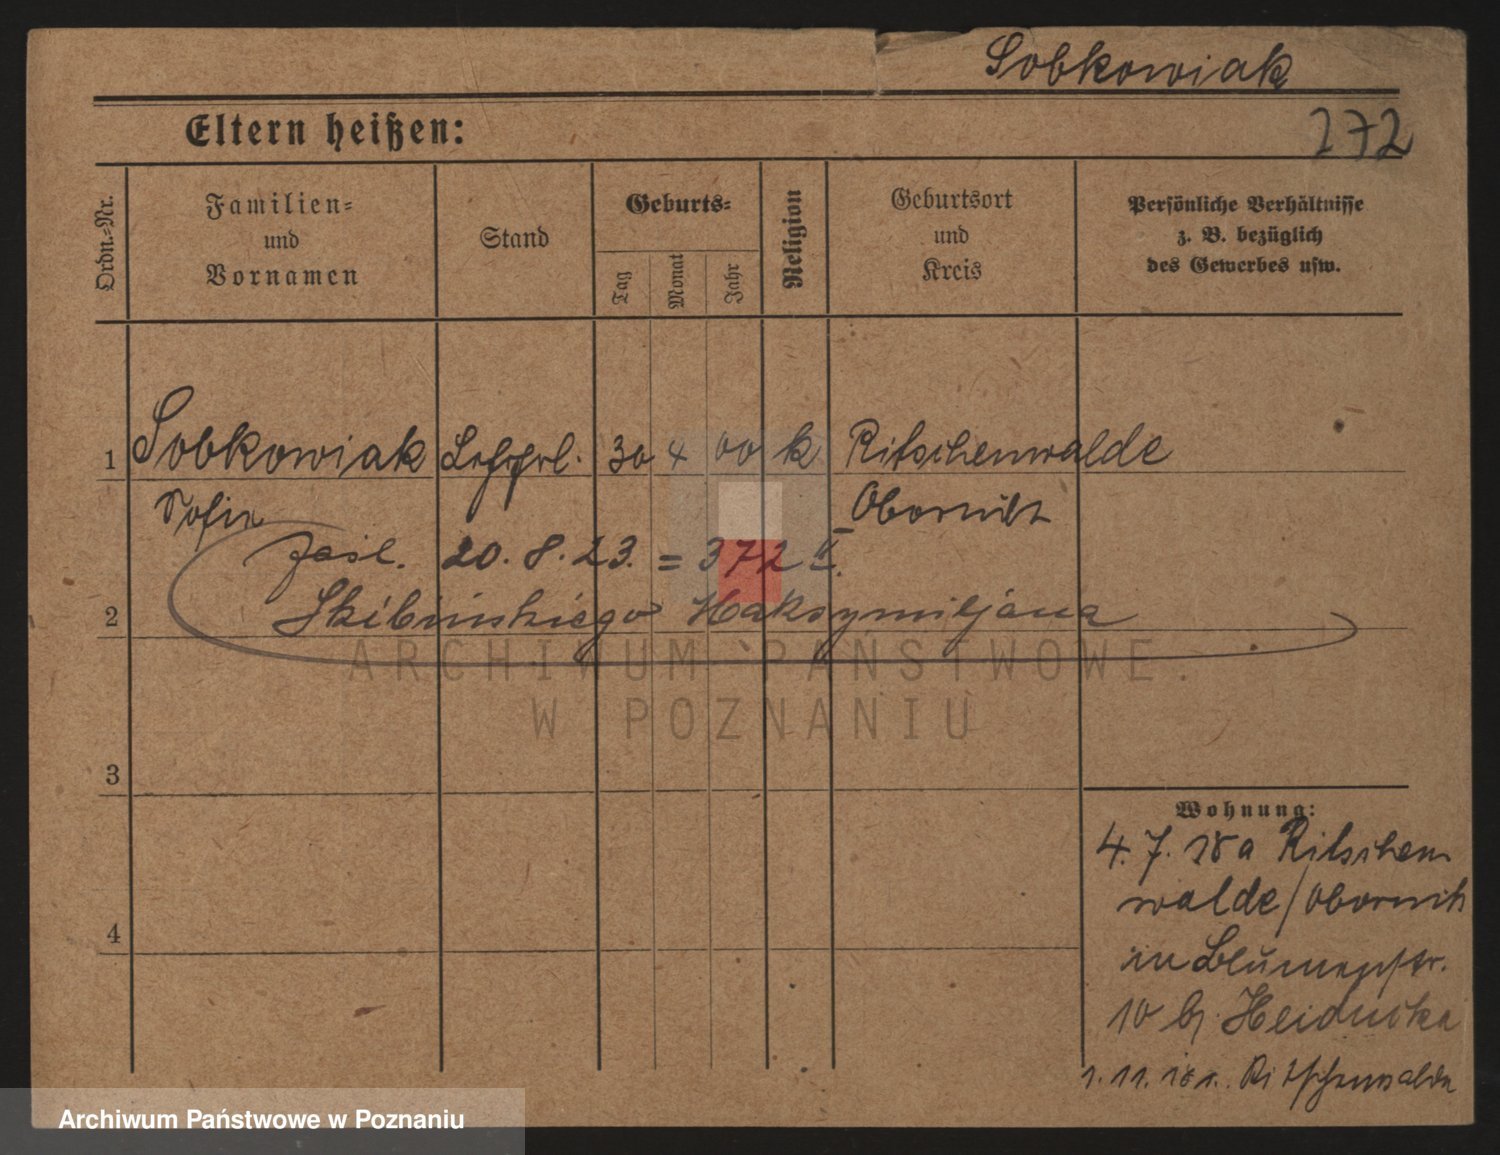 Sobkowiak
272
Eltern heißen:
Ordn.-Nr.
Familien- und Vornamen
Stand
Geburts-
Tag
Monat
Jahr
Religion
Geburtsort und Kreis
Persönliche Verhältnisse
z. B. bezüglich
des Gewerbes usw.
1 Sobkowiak 30 4 00 k Ritschenwalde
Sofie Obornik
zaśl. 20. 8. 23. = 372
2 Skibińskiego Maksymiljana
ARCHIWUM PAŃSTWOWE
W POZNANIU
3
Wohnung:
4. 7. 18 a Ritschen
walde/Obornik
in Blumenstr.
10 b/ Heiduska
4
1. 11. 18 Ritschenwalde
Archiwum Państwowe w Poznaniu